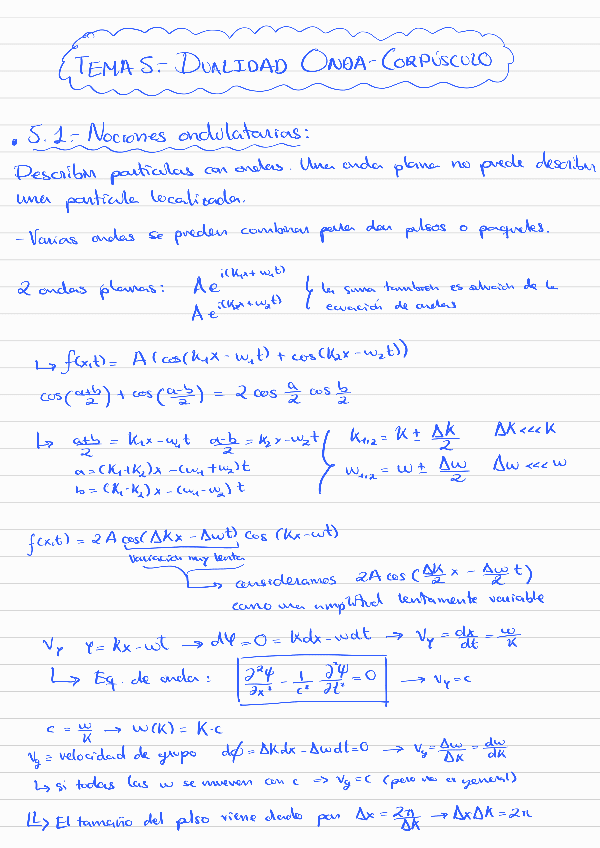 TEMA 5.- DUALIDAD ONDA-CORPÚSCULO
• 5.1.- Nociones ondulatorias:
Describir partículas con ondas. Una onda plana no puede describir
una partícula localizada.
- Varias ondas se pueden combinar para dar pulsos o paquetes.
2 ondas planas: A e^{i(k₁x + w₁t)}
A e^{i(k₂x + w₂t)} } la suma también es solución de la
ecuación de ondas
↳ f(x,t) = A (cos(k₁x - w₁t) + cos(k₂x - w₂t))
cos((a+b)/2) + cos((a-b)/2) = 2 cos a/2 cos b/2
↳ (a+b)/2 = k₁x - w₁t (a-b)/2 = k₂x - w₂t { k₁,₂ = k ± Δk/2 Δk <<< k
a = (k₁+k₂)x - (w₁+w₂)t
b = (k₁-k₂)x - (w₁-w₂)t w₁,₂ = w ± Δw/2 Δw <<< w
f(x,t) = 2A cos(Δkx - Δwt) cos (kx - wt)
variación muy lenta
↳ consideramos 2A cos(Δk/2 x - Δw/2 t)
como una amplitud lentamente variable
v_φ φ = kx - wt → dφ = 0 = kdx - wdt → v_φ = dx/dt = w/k
↳ Eq. de onda: ∂²ψ/∂x² - 1/c² ∂²ψ/∂t² = 0 → v_φ = c
c = w/k → w(k) = k·c
v_g ≡ velocidad de grupo dϕ = Δkdx - Δwdt = 0 → v_g = Δw/Δk = dw/dk
↳ si todas las w se mueven con c ⇒ v_g = c (pero no es general)
↳ El tamaño del plso viene dado por Δx = 2π/Δk → ΔxΔk = 2π